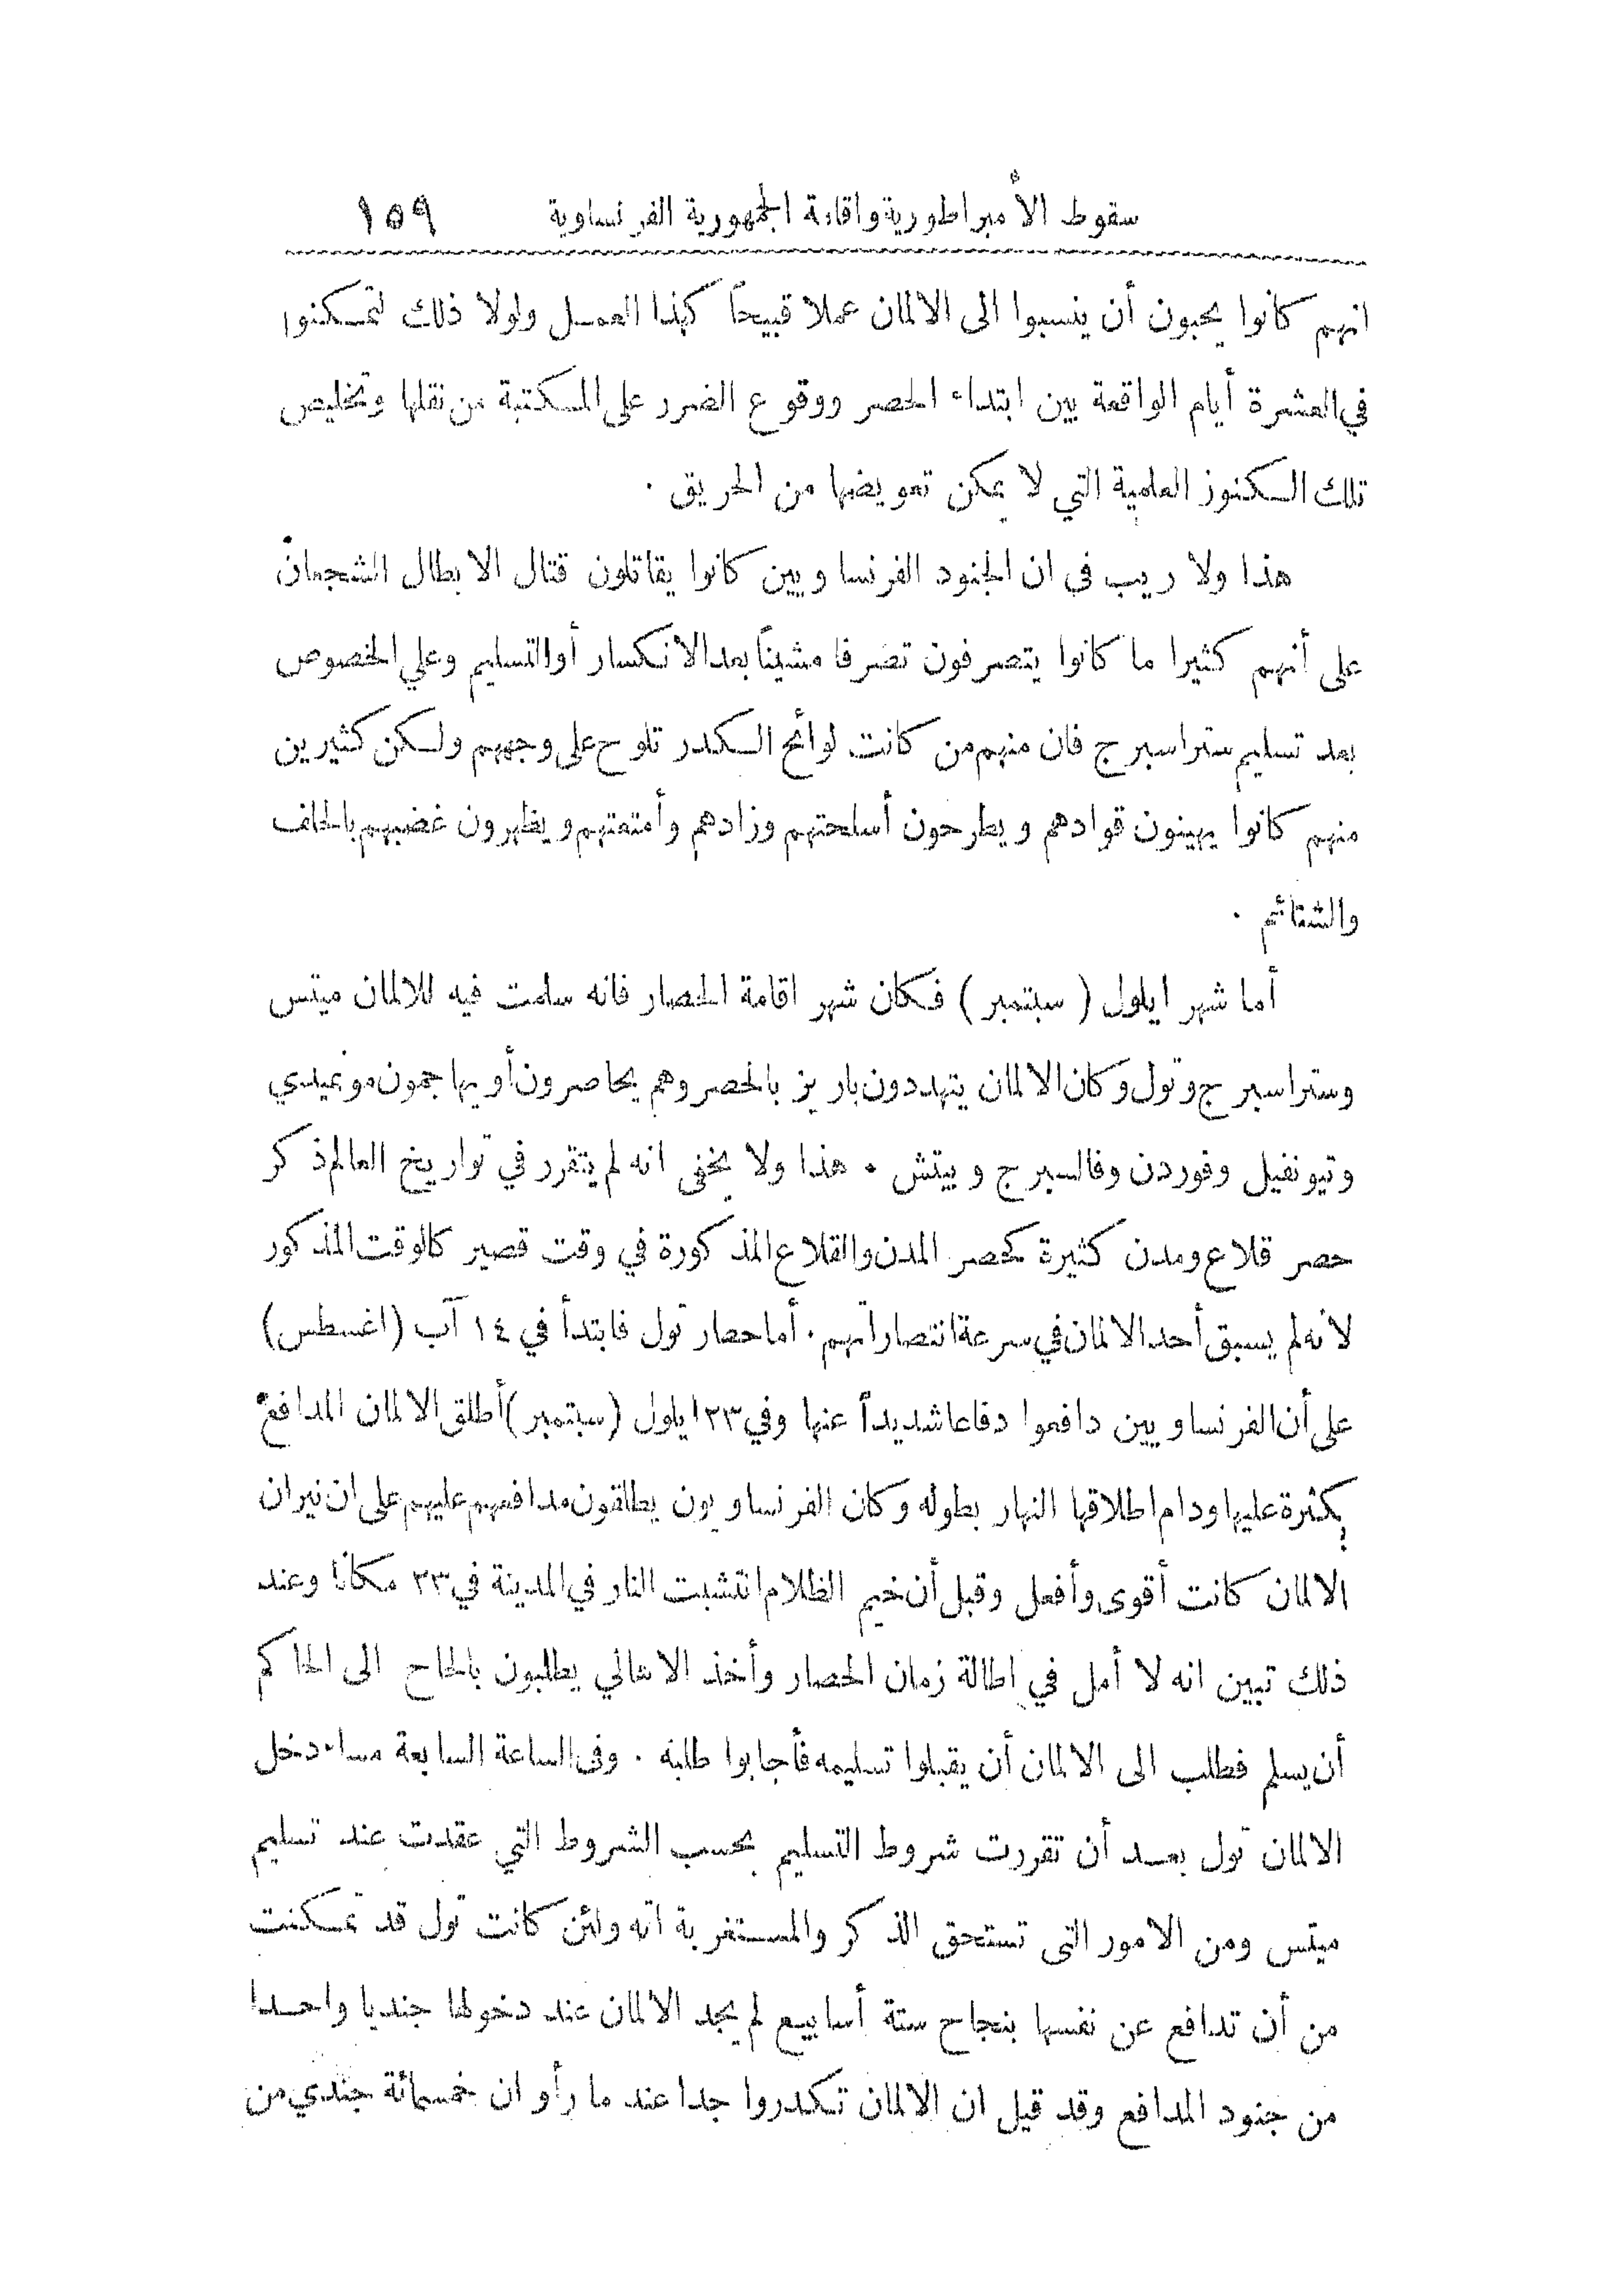 سقوط الأمبراطورية واقامة الجمهورية الفرنساوية ١٥٩
انهم كانوا يحبون أن ينسبوا الى الالمان عملا قبيحاً كهذا العمل ولولا ذلك لتمكنوا
في العشرة أيام الواقعة بين ابتداء الحصر ووقوع الضرر على المكتبة من نقلها وتخليص
تلك الكنوز العلمية التي لا يمكن تعويضها من الحريق .
هذا ولا ريب في ان الجنود الفرنساويين كانوا يقاتلون قتال الابطال الشجعان
على أنهم كثيرا ما كانوا يتصرفون تصرفا مشيناً بعد الانكسار أوالتسليم وعلي الخصوص
بعد تسليم ستراسبرج فان منهم من كانت لوائح الكدر تلوح على وجههم ولكن كثيرين
منهم كانوا يهينون قوادهم ويطرحون أسلحتهم وزادهم وأمتعتهم ويظهرون غضبهم بالحلف
والشتائم .
أما شهر ايلول ( سبتمبر ) فكان شهر اقامة الحصار فانه سلمت فيه للالمان ميتس
وستراسبرج وتول وكان الالمان يتهددون باريز بالحصر وهم يحاصرون أو يهاجمون مونميدي
وتيونفيل وفوردن وفالسبرج وبيتش . هذا ولا يخفى انه لم يتقرر في تواريخ العالم ذكر
حصر قلاع ومدن كثيرة كحصر المدن والقلاع المذكورة في وقت قصير كالوقت المذكور
لانه لم يسبق أحد الالمان في سرعة انتصاراتهم . أما حصار تول فابتدأ في ١٤ آب (اغسطس)
على أن الفرنساويين دافعوا دفاعا شديداً عنها وفي ٢٣ ايلول (سبتمبر) أطلق الالمان المدافع
بكثرة عليها ودام اطلاقها النهار بطوله وكان الفرنساويون يطلقون مدافعهم عليهم على ان نيران
الالمان كانت أقوى وأفعل وقبل أن خيم الظلام انتشبت النار في المدينة في ٢٣ مكانا وعند
ذلك تبين انه لا أمل في اطالة زمان الحصار وأخذ الاهالي يطلبون بالحاح الى الحاكم
أن يسلم فطلب الى الالمان أن يقبلوا تسليمه فأجابوا طلبه . وفى الساعة السابعة مساء دخل
الالمان تول بعد أن تقررت شروط التسليم بحسب الشروط التي عقدت عند تسليم
ميتس ومن الامور التى تستحق الذكر والمستغربة انه ولئن كانت تول قد تمكنت
من أن تدافع عن نفسها بنجاح ستة أسابيع لم يجد الالمان عند دخولها جنديا واحدا
من جنود المدافع وقد قيل ان الالمان تكدروا جدا عند ما رأو ان خمسمائة جندي من